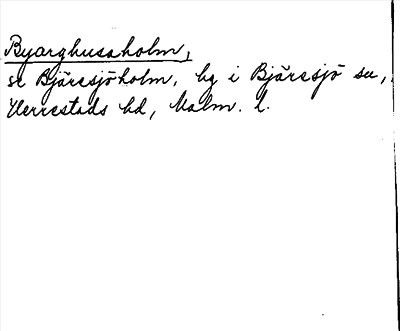 Byarghusaholm,
se Bjäresjöholm, hg i Bjäresjö sn,
Herrestads hd, Malm. l.